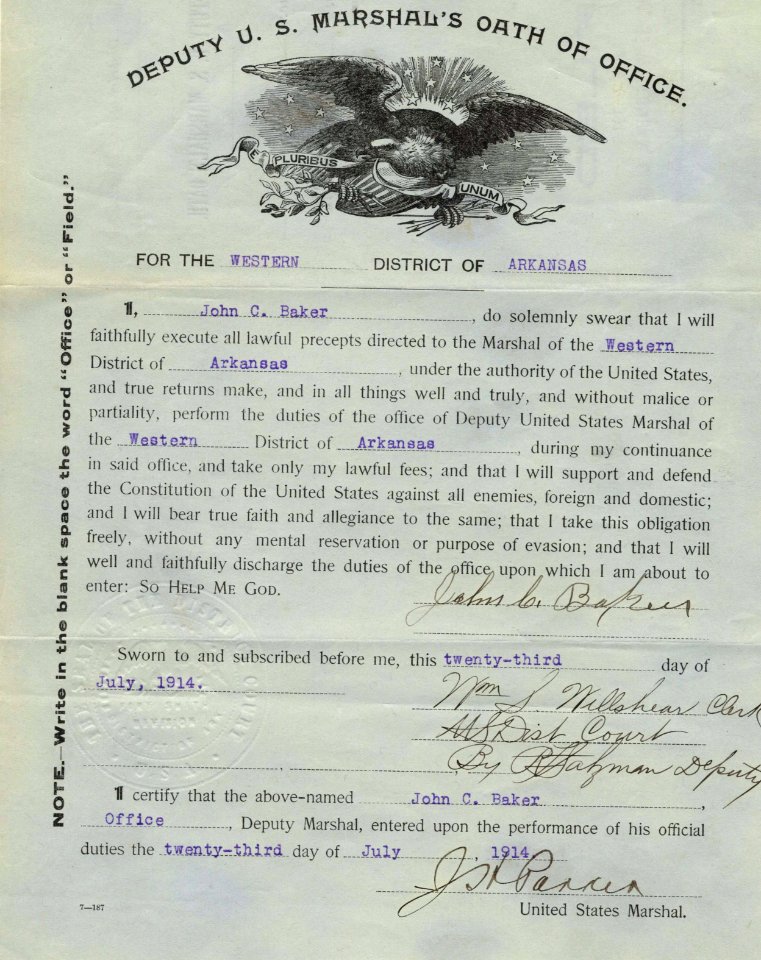 DEPUTY U. S. MARSHAL'S OATH OF OFFICE.
PLURIBUS
UNUM
FOR THE WESTERN DISTRICT OF ARKANSAS
NOTE.—Write in the blank space the word "Office" or "Field."
I, John C. Baker, do solemnly swear that I will
faithfully execute all lawful precepts directed to the Marshal of the Western
District of Arkansas, under the authority of the United States,
and true returns make, and in all things well and truly, and without malice or
partiality, perform the duties of the office of Deputy United States Marshal of
the Western District of Arkansas, during my continuance
in said office, and take only my lawful fees; and that I will support and defend
the Constitution of the United States against all enemies, foreign and domestic;
and I will bear true faith and allegiance to the same; that I take this obligation
freely, without any mental reservation or purpose of evasion; and that I will
well and faithfully discharge the duties of the office upon which I am about to
enter: SO HELP ME GOD.
John C. Baker
Sworn to and subscribed before me, this twenty-third day of
July, 1914.
Wm S. Wellshear Clerk
US Dist Court
By Deputy
I certify that the above-named John C. Baker,
Office, Deputy Marshal, entered upon the performance of his official
duties the twenty-third day of July, 1914
J H Parker
United States Marshal.
7—187